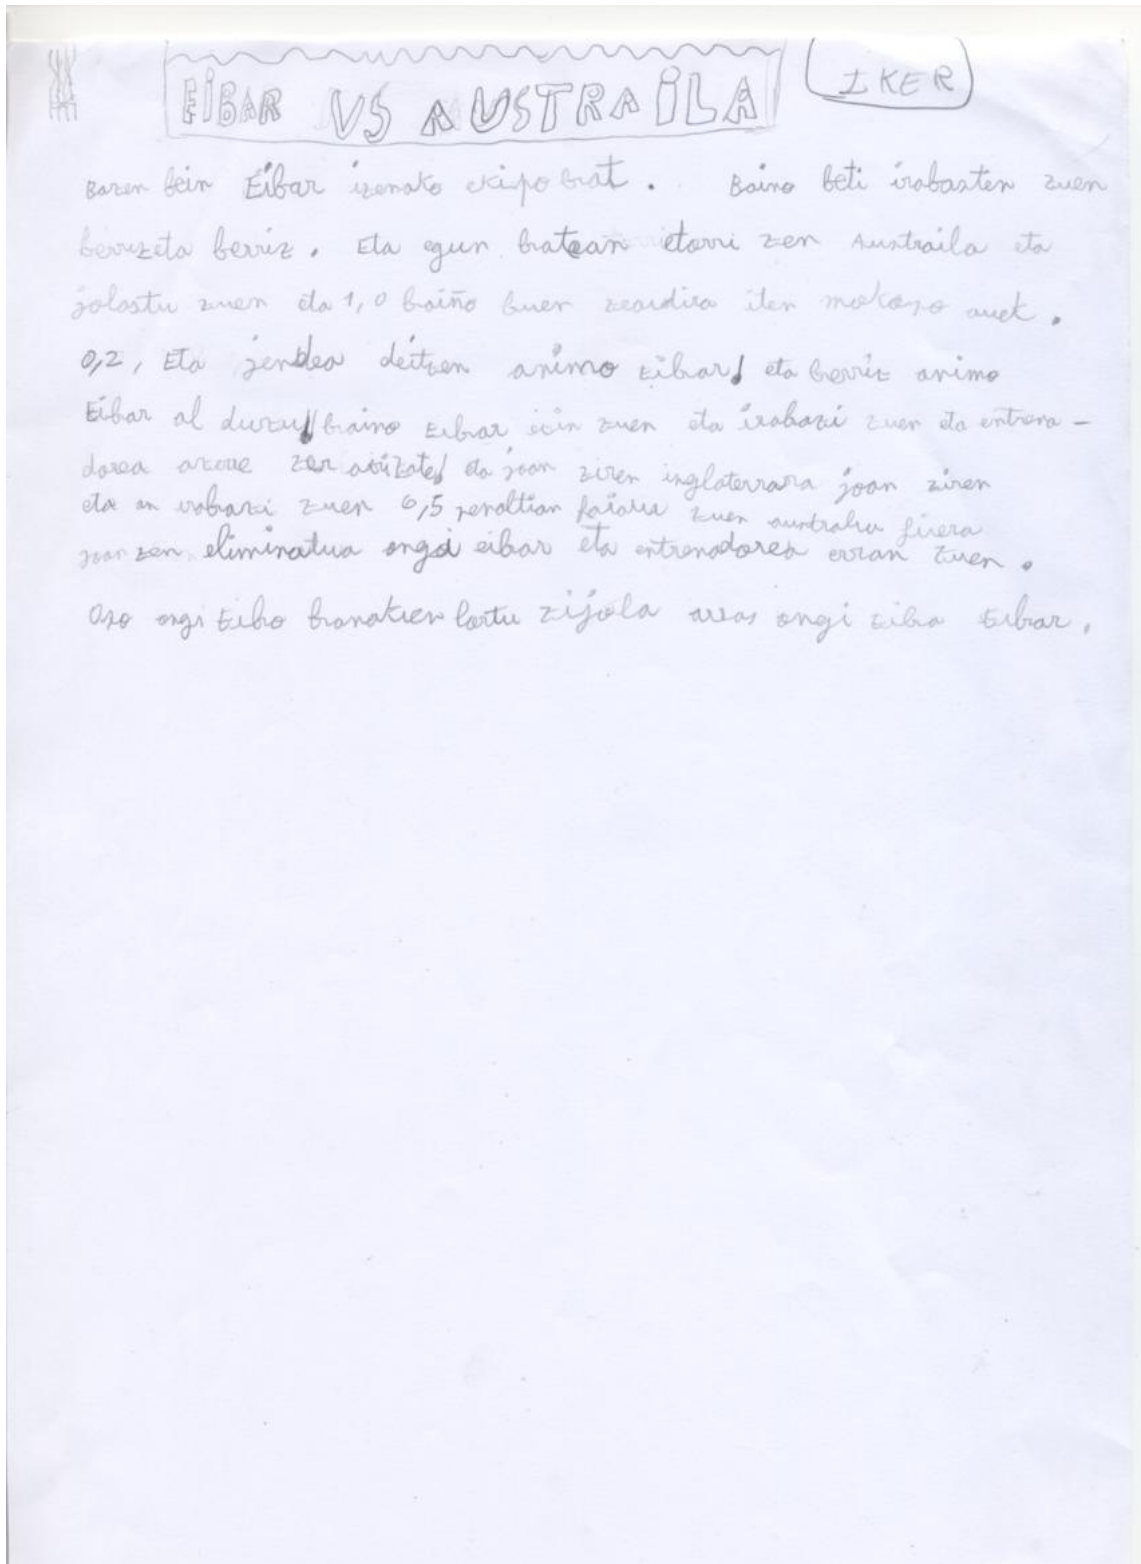 EIBAR VS AUSTRAILA
IKER
Bazen bein Eibar izenako ekipo bat. Baino beti irabazten zuen
berrizeta berriz. Eta egun batean etorri zen Austraila eta
jolastu zuen eta 1,0 baiño buen zeardira iten mokoyo auek.
0,2, Eta jendea deitzen animo Eibar! eta berriz animo
Eibar al duzu!! baino Eibar izin zuen eta irabazi zuen eta entrena-
dorea arove zer abizate! eta joan ziren inglaterrara joan ziren
eta an irabazi zuen 6,5 penaltian faiatu zuen australia fuera
joan zen eliminatua ongi eibar eta entrenadorea erran zuen.
Oso ongi Eibo banakien lortu zijola arras ongi eiba Eibar.